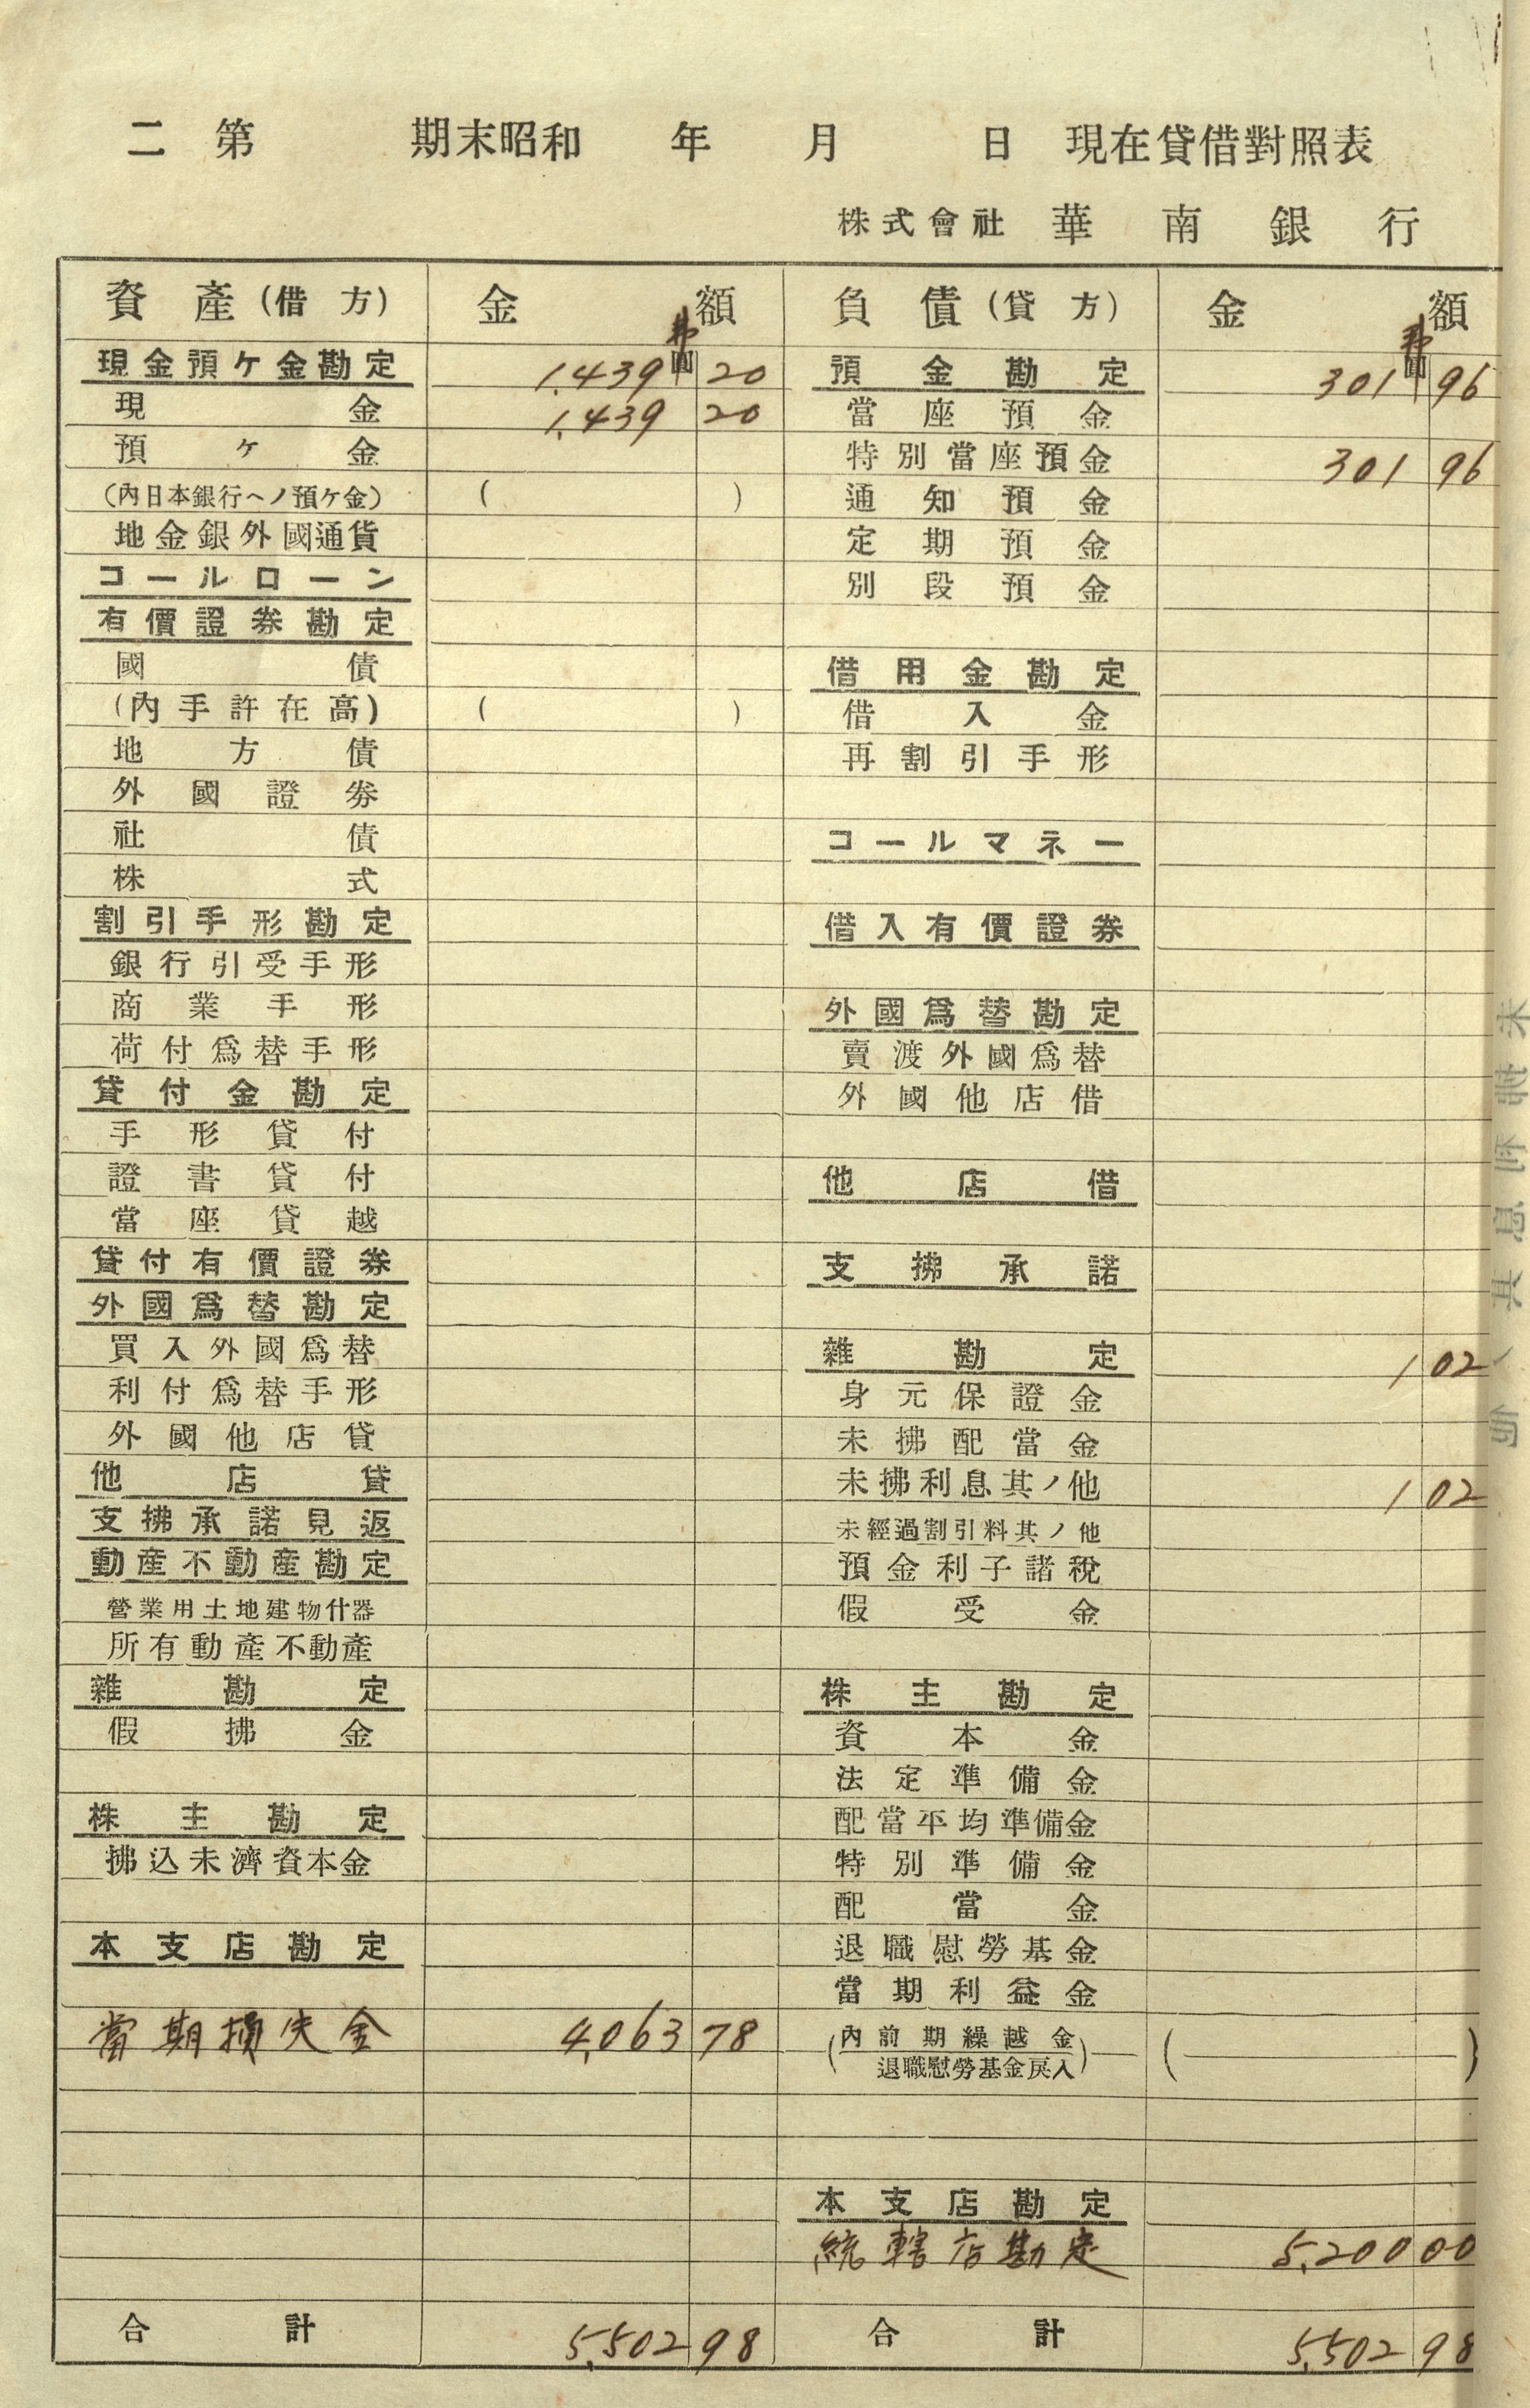 二 第 期末昭和 年 月 日 現在貸借對照表
株式會社 華南銀行
資產(借方) 金額 負債(貸方) 金額
現金預ケ金勘定 1,439 弗 20 預金勘定 301 弗 96
現金 1,439 20 當座預金
預ケ金 特別當座預金 301 96
(內日本銀行ヘノ預ケ金) ( ) 通知預金
地金銀外國通貨 定期預金
コールローン 別段預金
有價證券勘定
國債 借用金勘定
(內手許在高) ( ) 借入金
地方債 再割引手形
外國證券
社債 コールマネー
株式
割引手形勘定 借入有價證券
銀行引受手形
商業手形 外國爲替勘定
荷付爲替手形 賣渡外國爲替
貸付金勘定 外國他店借
手形貸付
證書貸付 他店借
當座貸越
貸付有價證券 支拂承諾
外國爲替勘定
買入外國爲替 雜勘定 1 02
利付爲替手形 身元保證金
外國他店貸 未拂配當金
他店貸 未拂利息其ノ他 1 02
支拂承諾見返 未經過割引料其ノ他
動産不動産勘定 預金利子諸稅
營業用土地建物什器 假受金
所有動產不動產
雜勘定 株主勘定
假拂金 資本金
法定準備金
株主勘定 配當平均準備金
拂込未濟資本金 特別準備金
配當金
本支店勘定 退職慰勞基金
當期利益金
當期損失金 4,063 78 (內前期繰越金 退職慰勞基金戾入) ( )
本支店勘定
統轄店勘定 5,200 00
合計 5,502 98 合計 5,502 98